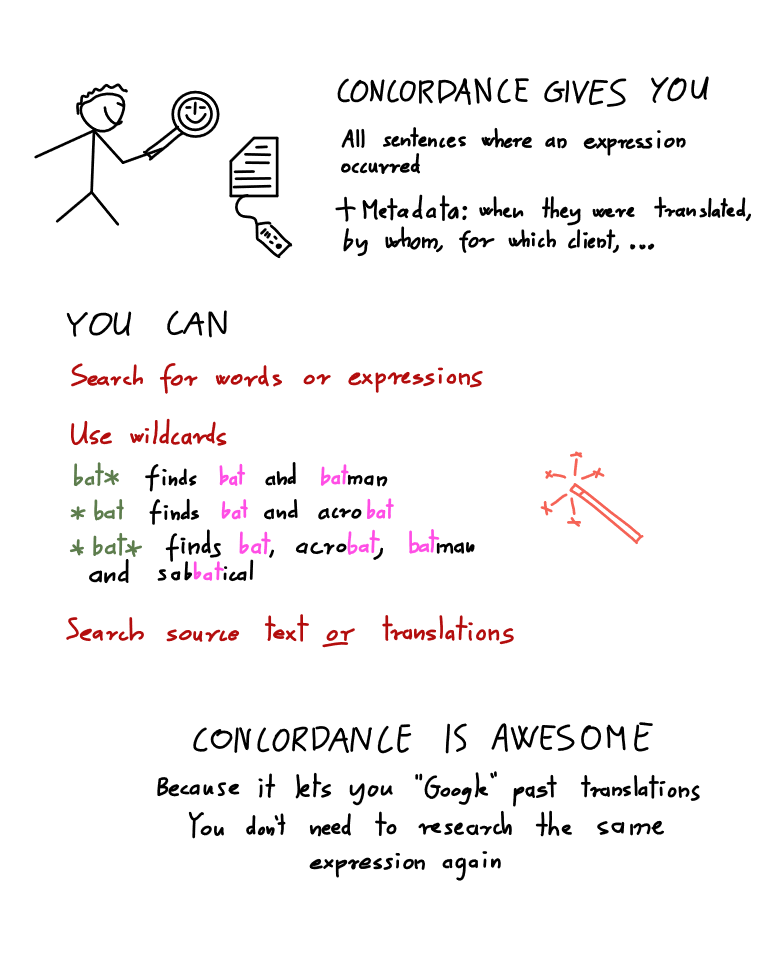 CONCORDANCE GIVES YOU
All sentences where an expression
occurred
+ Metadata: when they were translated,
by whom, for which client, ...
YOU CAN
Search for words or expressions
Use wildcards
bat* finds bat and batman
*bat finds bat and acrobat
*bat* finds bat, acrobat, batman
and sabbatical
Search source text or translations
CONCORDANCE IS AWESOME
Because it lets you "Google" past translations
You don't need to research the same
expression again